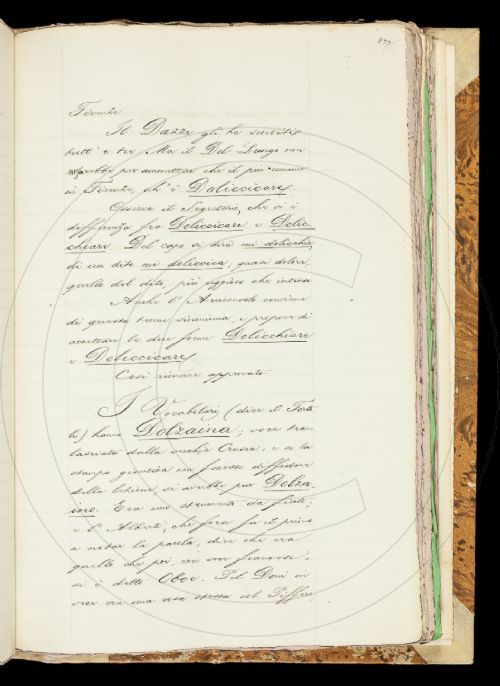 877
Firenze
Il Dazzi gli ha scritti
tutt' e tre. Ma il Del Lungo non
sarebbe per ammettere che il più comune
in Firenze, ch' è Doliccicare.
Osserva il Segretario, che vi è
differenza fra Doliccicare e Dolic-
chiare. Del capo si dirà mi dolicchia,
di un dito mi doliccica; quasi dolere,
quello del dito, più leggiero che intenso
Anche l' Arciconsolo conviene
di questa tenue sinonimia, e propone di
accettare le due forme Dolicchiare
e Doliccicare
Così rimane approvato.
I Vocabolarj (dice il Torto-
li) hanno Dolzaina; voce tra-
lasciata dalla vecchia Crusca: e se la
stampa giuntina non facesse diffidare
della lezione, si avrebbe pur Dolza-
ine. Era uno strumento da fiato;
e l' Alberti, che forse fu il primo
a notar la parola, dice che era
quello che poi, con voce francese,
si è detto Oboe. Pel Doni in
vece era una cosa stessa col Piffero,